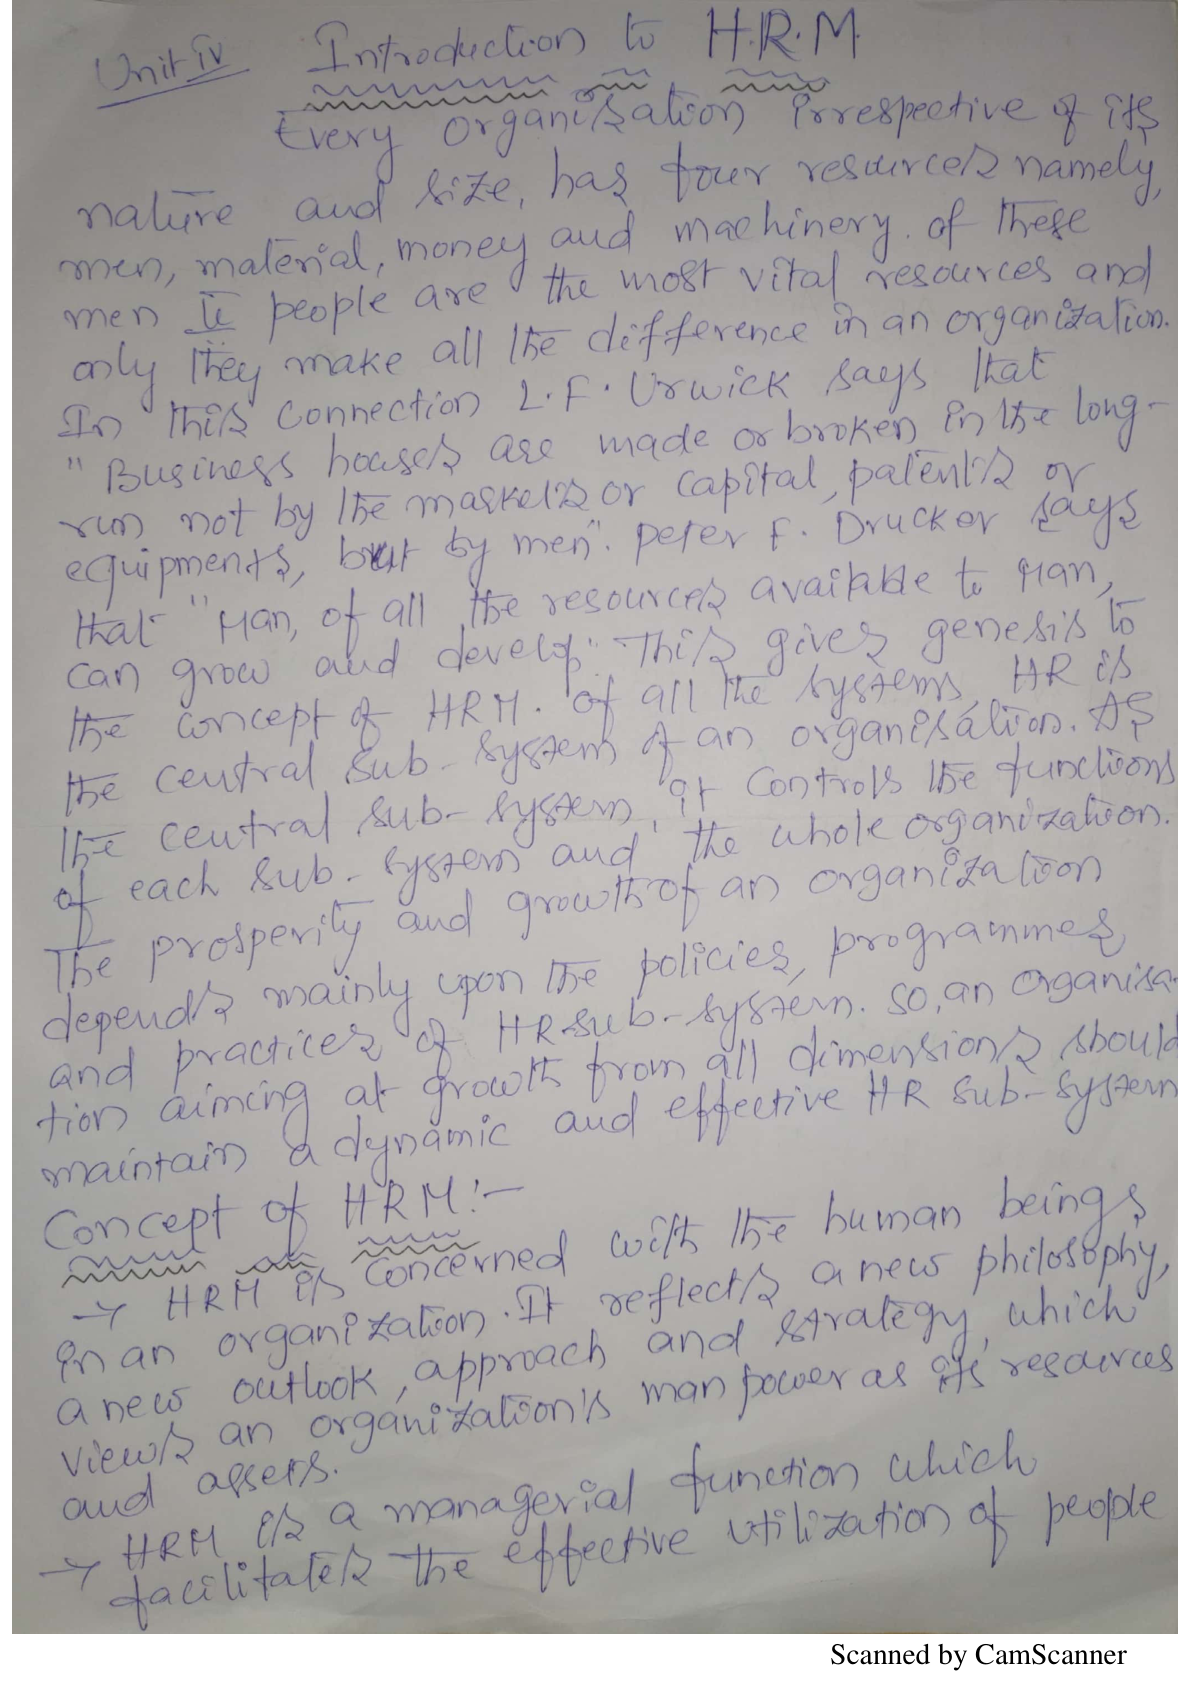 Unit IV Introduction to H.R.M.
Every organisation irrespective of its
nature and size, has four resources namely,
men, material, money and machinery. of these
men ie people are the most vital resources and
only they make all the difference in an organization.
In this connection L.F. Urwick says that
"Business houses are made or broken in the long-
run not by the markets or capital, patents or
equipments, but by men". Peter F. Drucker says
that "Man, of all the resources available to Man,
can grow and develop". This gives genesis to
the concept of HRM. Of all the systems, HR is
the central sub-system of an organisation. As
the central sub-system, it controls the functions
of each sub-system and the whole organization.
The prosperity and growth of an organization
depends mainly upon the policies, programmes,
and practices of HR sub-system. So, an organisa-
tion aiming at growth from all dimensions should
maintain a dynamic and effective HR sub-system
Concept of HRM:-
→ HRM is concerned with the human beings
in an organization. It reflects a new philosophy,
a new outlook, approach and strategy, which
views an organization's man power as its resources
and assets.
→ HRM is a managerial function which
facilitates the effective utilization of people
Scanned by CamScanner